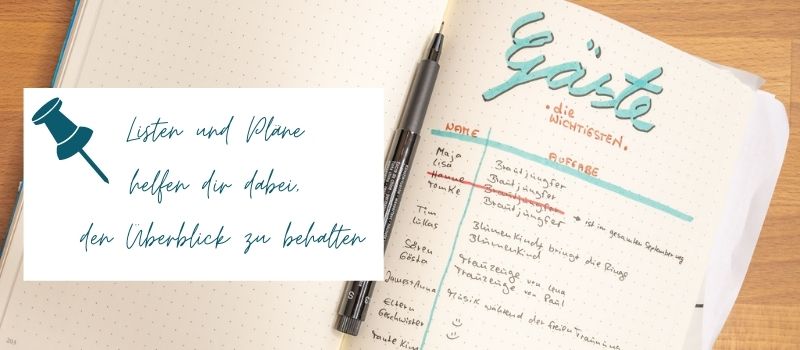 Listen und Pläne
helfen dir dabei,
den Überblick zu behalten
Gäste
• die
WICHTIGSTEN.
NAME AUFGABE
Maja Brautjungfer
Lisa Brautjungfer
Hanna Brautjungfer → ist im gesamten September weg
Tomke Brautjungfer
Tim Blumenkind & bringt die Ringe
Lukas Blumenkind
Sören Trauzeuge von Lena
Gösta Trauzeuge von Paul
James & Anna Musik während der freien Trauung
Eltern
Geschwister
Tante
S
203